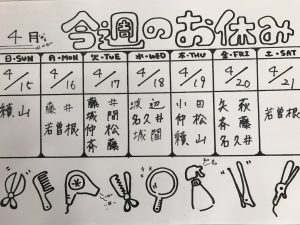 4月 今週のお休み
日・SUN 月・MON 火・TUE 水・WED 木・THU 金・FRI 土・SAT
4/15 4/16 4/17 4/18 4/19 4/20 4/21
積山 藤井 藤井 渡辺 小田 矢萩 若曽根
若曽根 城間 名久井 仲松 斉藤
仲松 城間 積山 名久井
斉藤